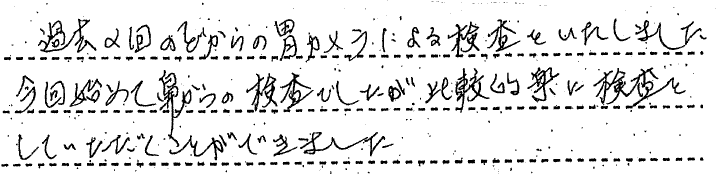 過去2回のどからの胃カメラによる検査をいたしました
今回始めて鼻からの検査でしたが比較的楽に検査を
していただくことができました